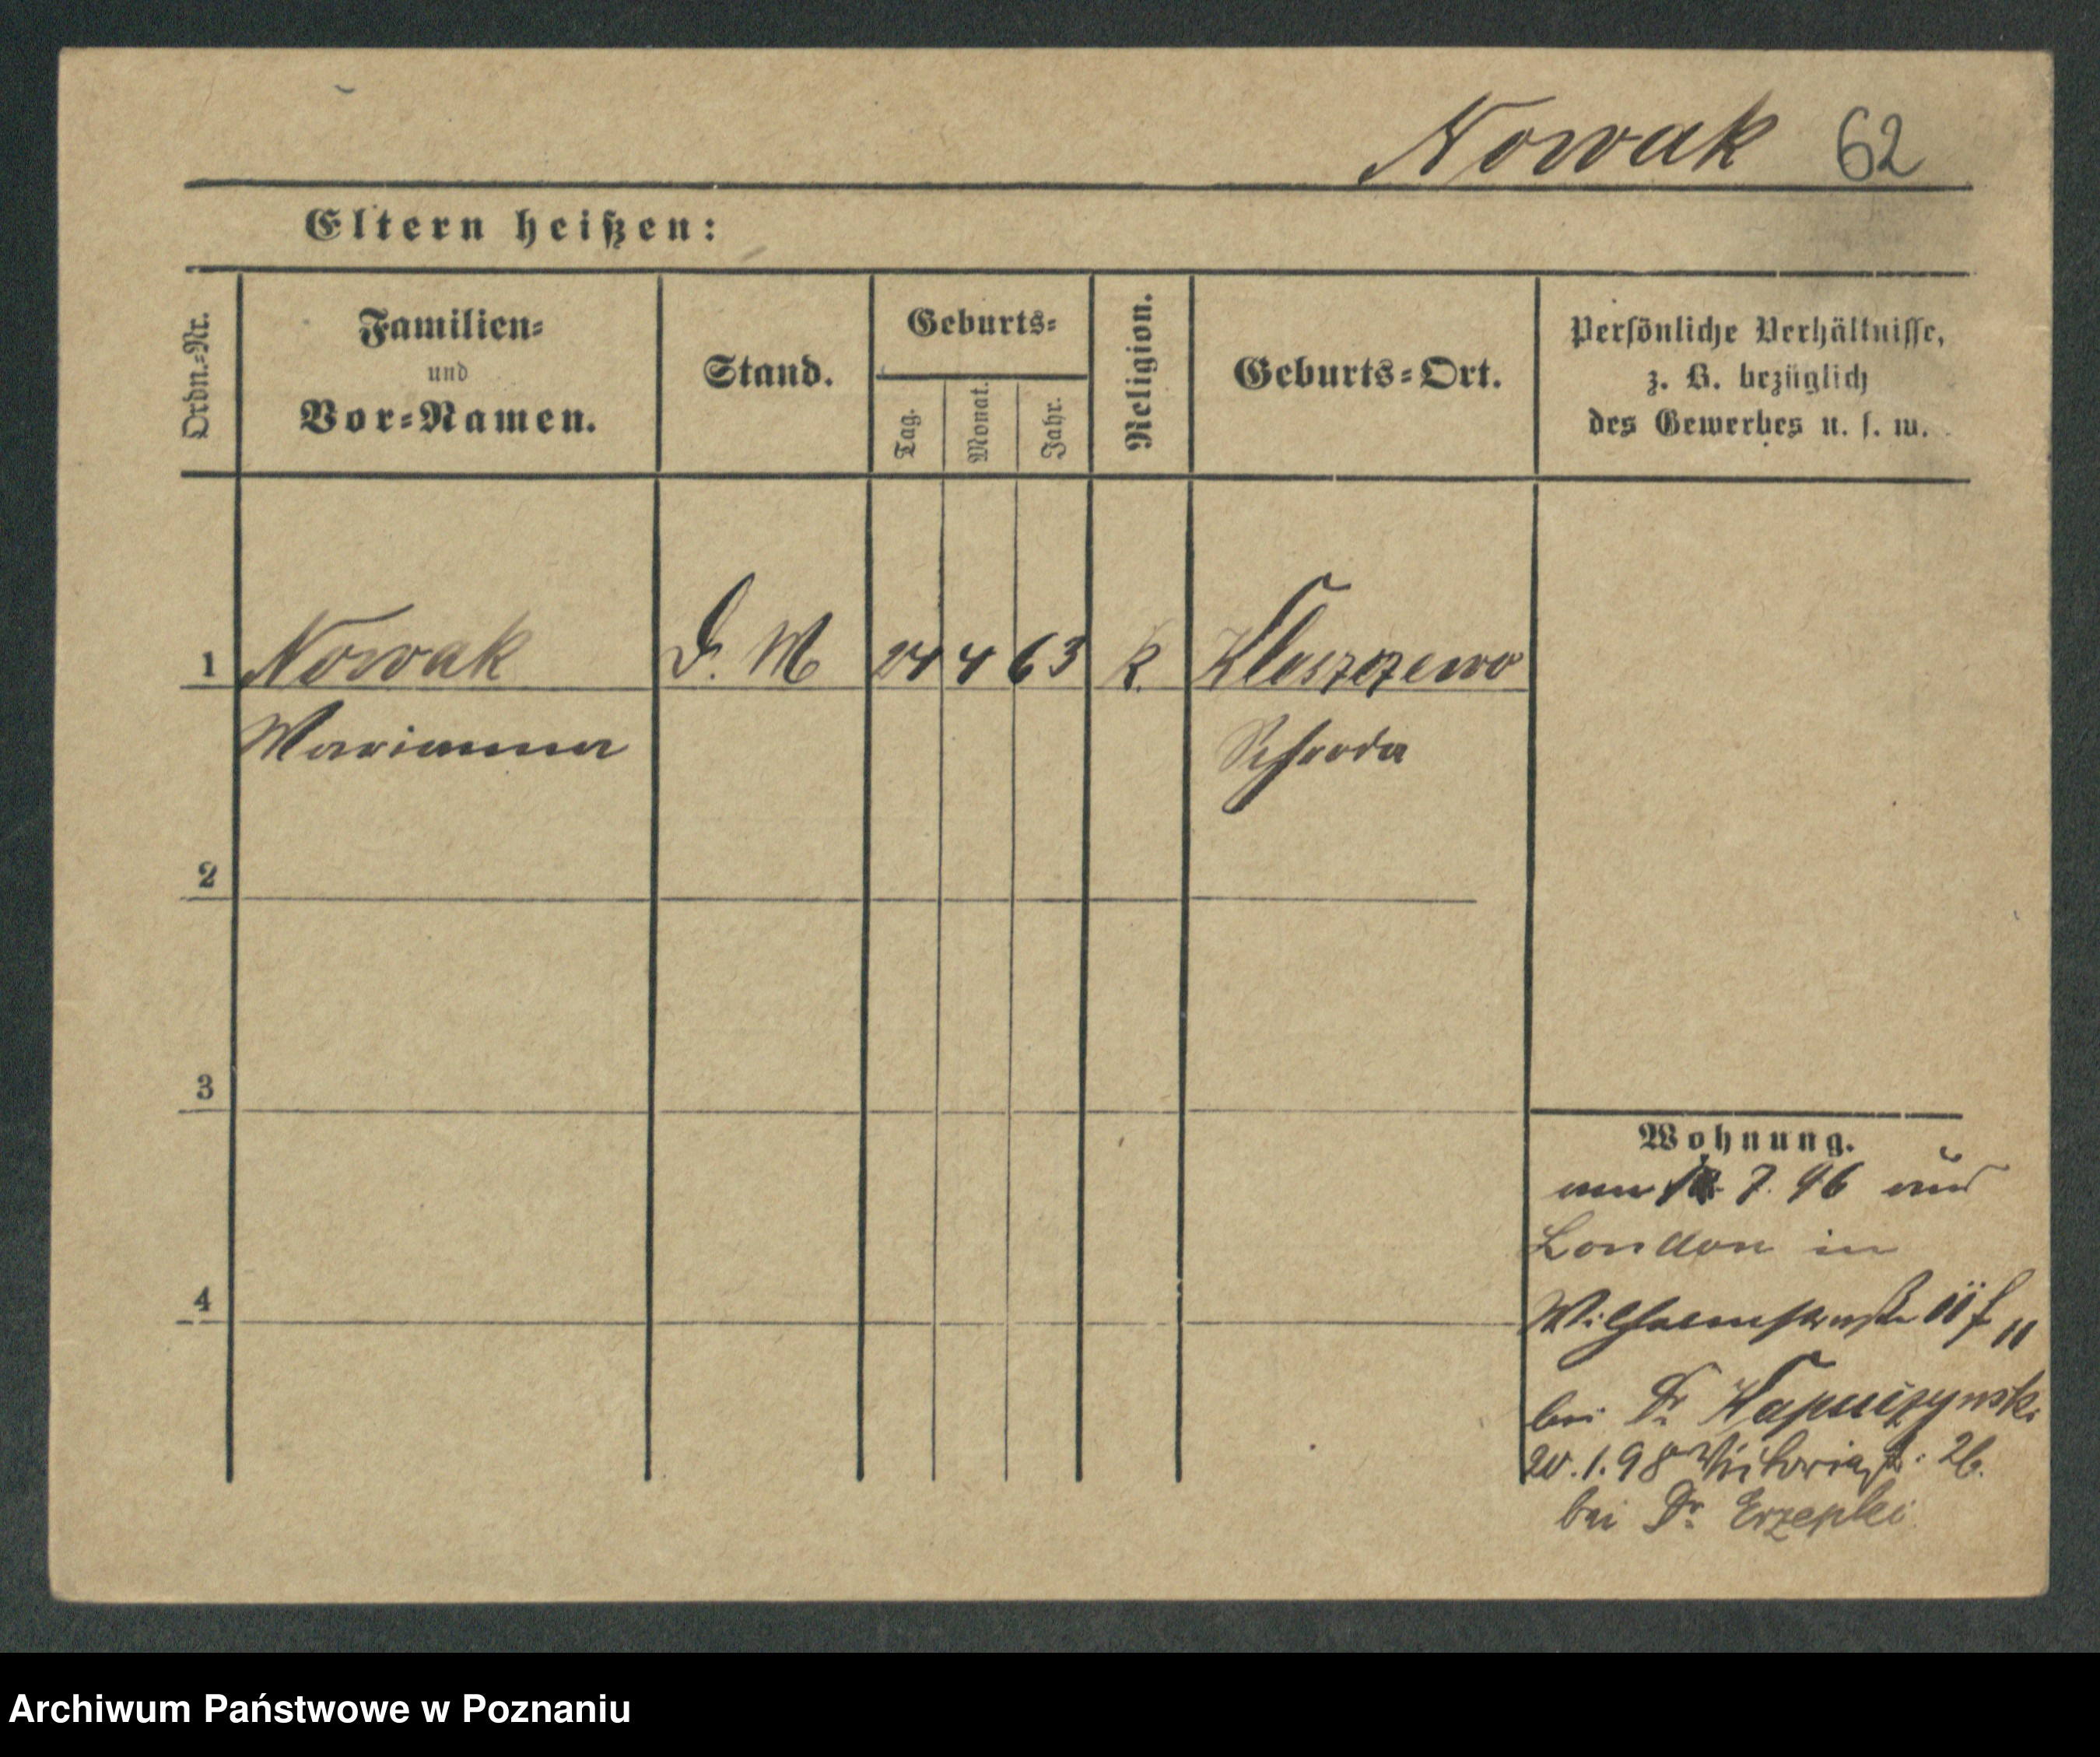 Nowak 62
Eltern heißen:
Ordn.-Nr.
Familien-
und
Vor-Namen.
Stand.
Geburts-
Tag.
Monat.
Jahr.
Religion.
Geburts-Ort.
Persönliche Verhältnisse,
z. B. bezüglich
des Gewerbes u. s. w.
1 Nowak D. M 24 4 63 K. Kleszczewo
Marianna Schroda
2
3
4
Wohnung.
7. 96 aus
London in
Wilhelmstraße 11
bei Dr Kapuszynski
20.1.98 Victoriastr. 26.
bei Dr Erzepki
Archiwum Państwowe w Poznaniu